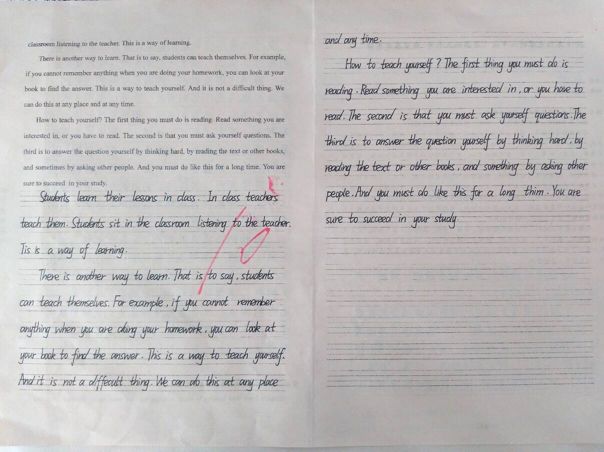 classroom listening to the teacher. This is a way of learning.
There is another way to learn. That is to say, students can teach themselves. For example,
if you cannot remember anything when you are doing your homework, you can look at your
book to find the answer. This is a way to teach yourself. And it is not a difficult thing. We
can do this at any place and at any time.
How to teach yourself? The first thing you must do is reading. Read something you are
interested in, or you have to read. The second is that you must ask yourself questions. The
third is to answer the question yourself by thinking hard, by reading the text or other books,
and sometimes by asking other people. And you must do like this for a long time. You are
sure to succeed in your study.
Students learn their lessons in class. In class teachers
teach them. Students sit in the classroom listening to the teacher.
Tis is a way of learning.
There is another way to learn. That is to say, students
can teach themselves. For example, if you cannot remember
anything when you are doing your homework, you can look at
your book to find the answer. This is a way to teach yourself.
And it is not a diffecult thing. We can do this at any place
and any time.
How to teach yourself? The first thing you must do is
reading. Read something you are interested in, or you have to
read. The second is that you must ask yourself questions. The
third is to answer the question yourself by thinking hard, by
reading the text or other books, and something by asking other
people. And you must do like this for a long thim. You are
sure to succeed in your study